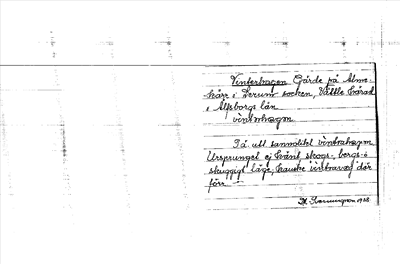 Vinterhagen Gärde på Alme-
kärr i Lerums socken, Vättle härad
i Älfsborgs län
vintrhagen
På utt. sannolikt vintrahagen
Ursprunget ej känt, skogs-, bergs- o
skuggigt läge, kanske vintraväg där
förr. —
1928